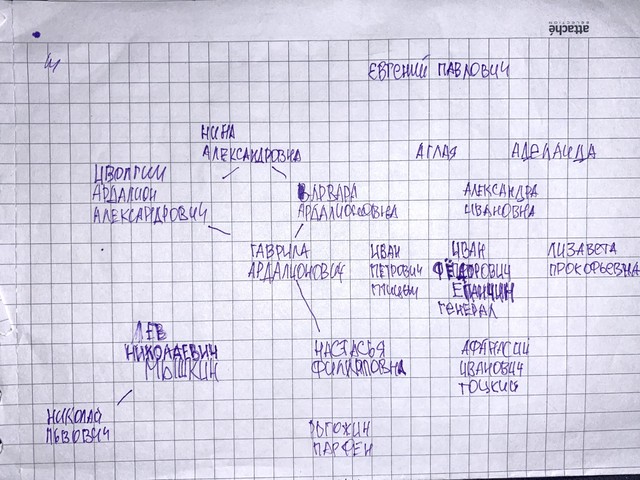 attaché
ЕВГЕНИЙ ПАВЛОВИЧ
НИНА
АЛЕКСАНДРОВНА
АГЛАЯ
АДЕЛАИДА
ИВОЛГИН
АРДАЛИОН
АЛЕКСАНДРОВИЧ
ВАРВАРА
АРДАЛИОНОВНА
АЛЕКСАНДРА
ИВАНОВНА
ГАВРИЛА
АРДАЛИОНОВИЧ
ИВАН
ПЕТРОВИЧ
ПТИЦЫН
ИВАН
ФЁДОРОВИЧ
ЕПАНЧИН
ГЕНЕРАЛ
ЛИЗАВЕТА
ПРОКОФЬЕВНА
ЛЕВ
НИКОЛАЕВИЧ
МЫШКИН
НАСТАСЬЯ
ФИЛИППОВНА
АФАНАСИЙ
ИВАНОВИЧ
ТОЦКИЙ
НИКОЛАЙ
ЛЬВОВИЧ
РОГОЖИН
ПАРФЕН